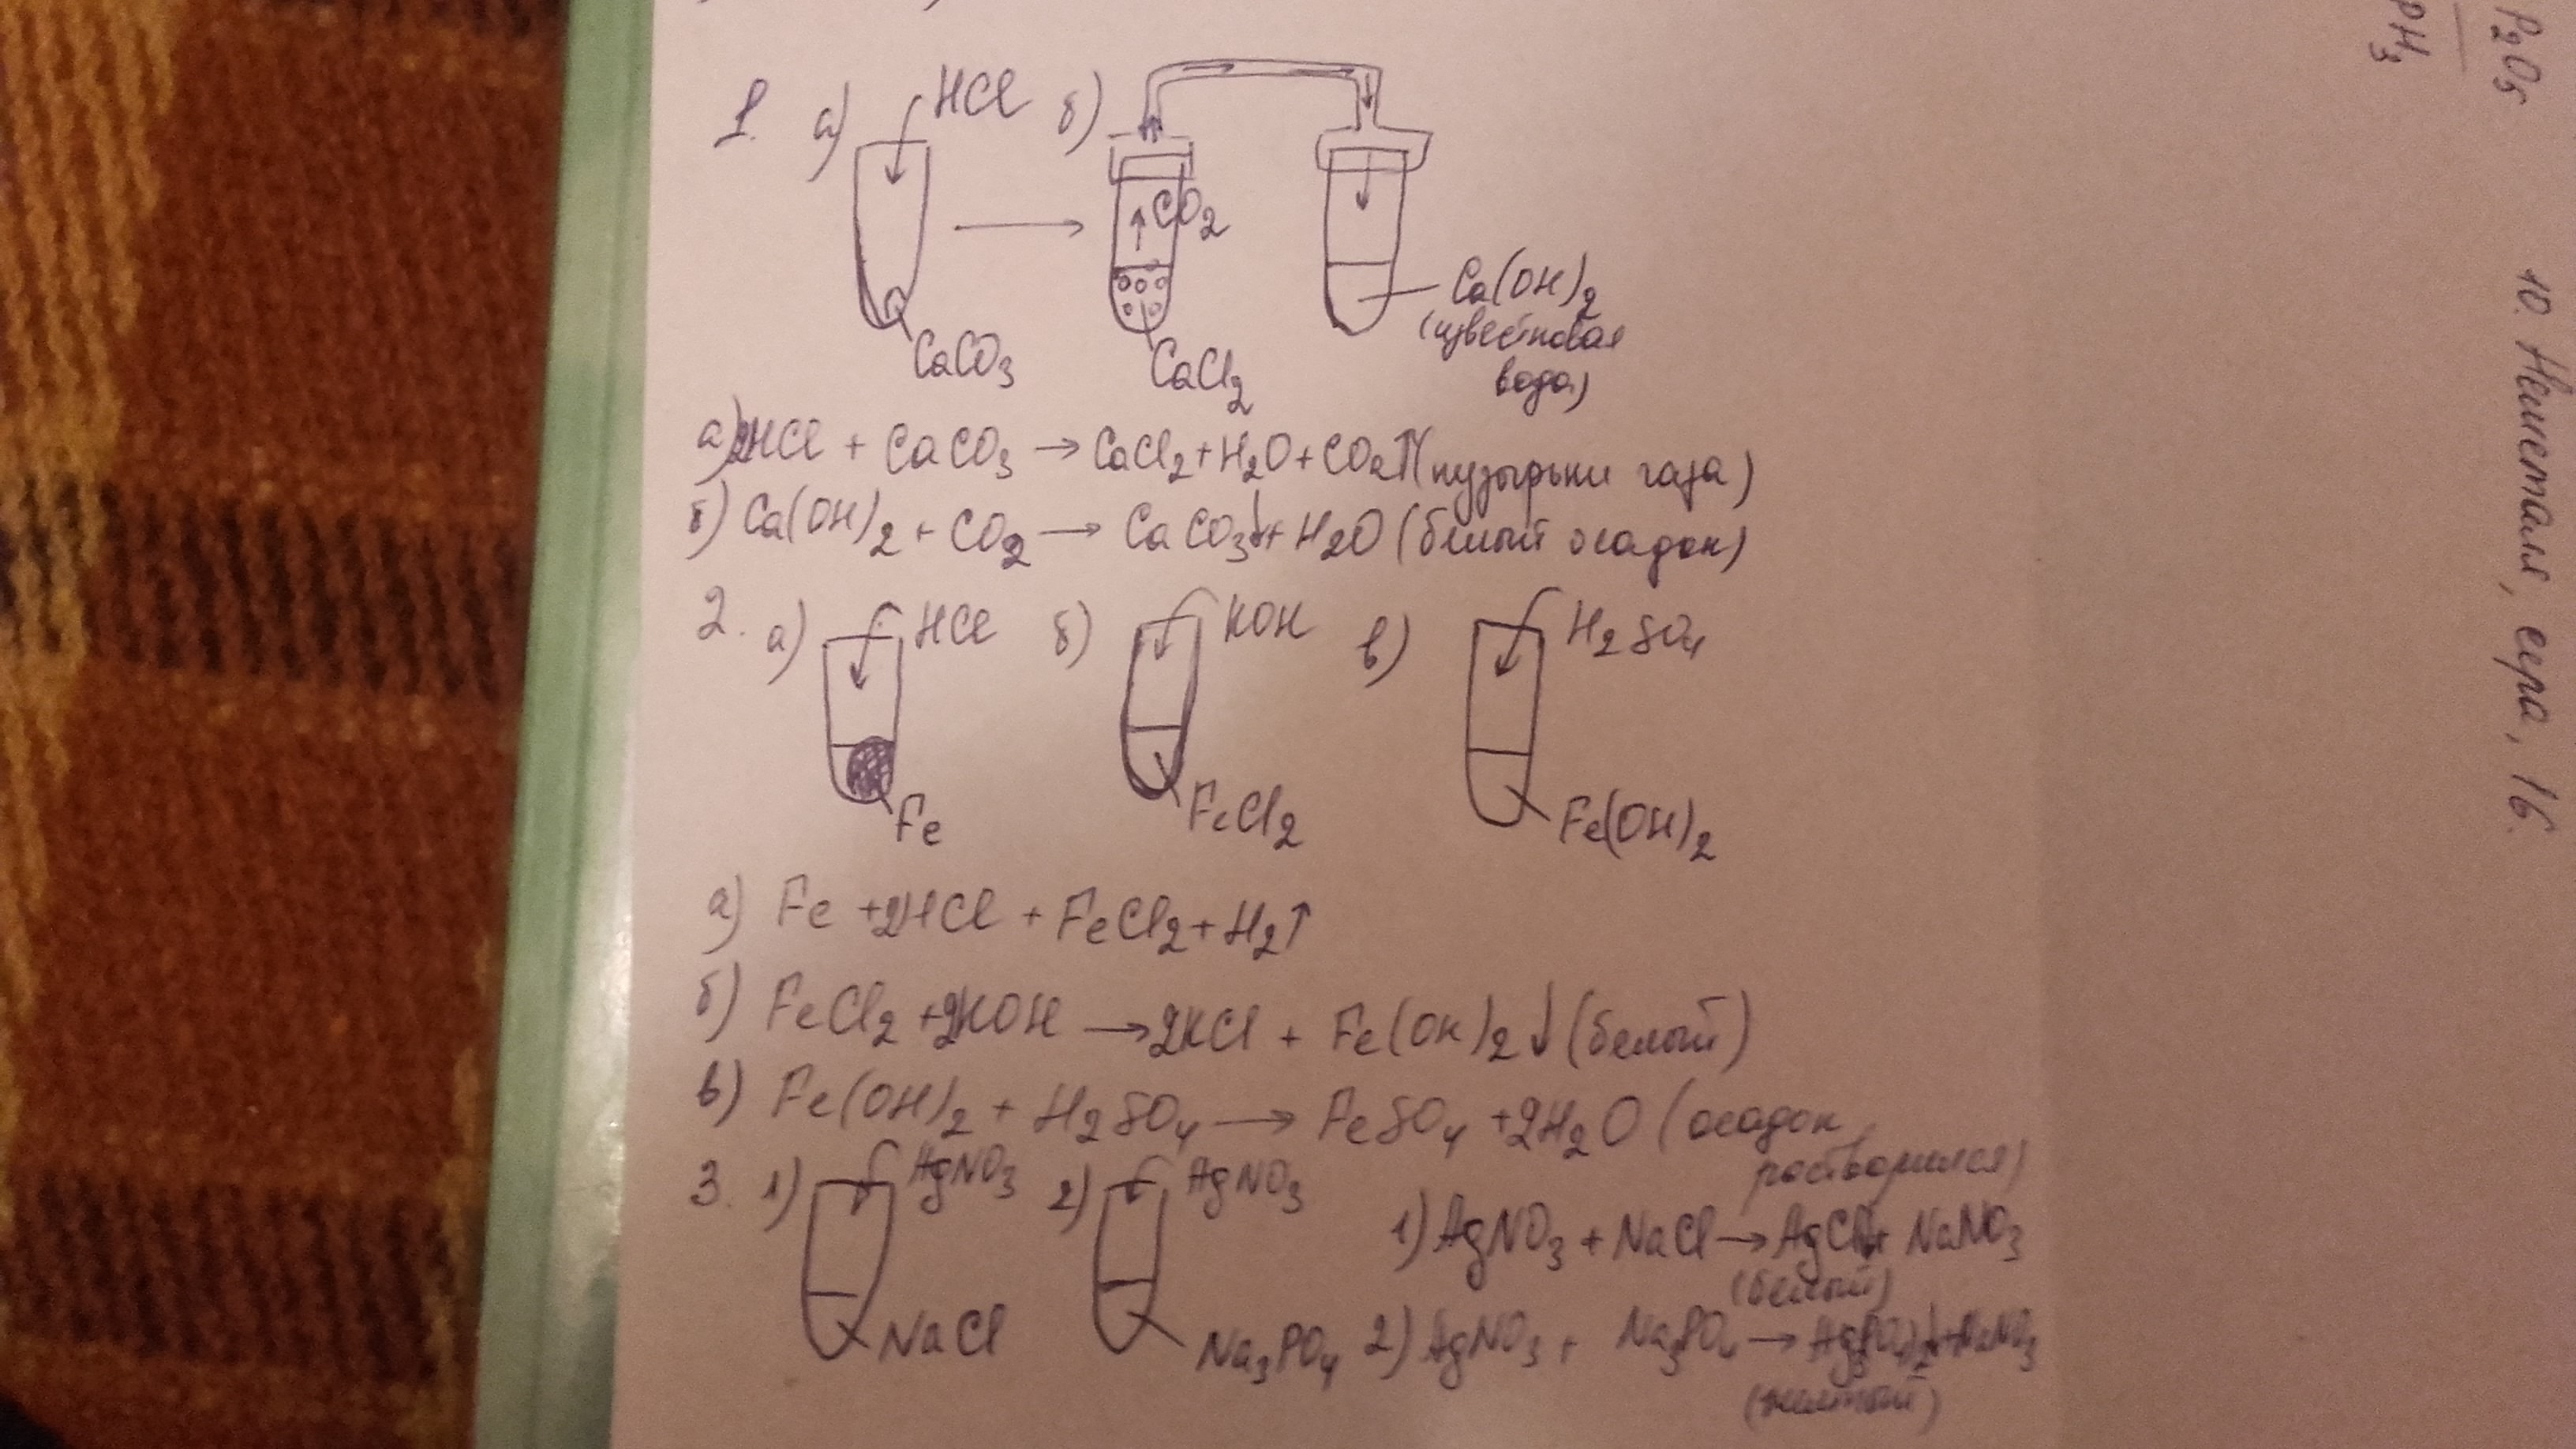 1. а) HCl б)
CO2
Ca(OH)2
(известковая
вода)
CaCO3 CaCl2
а) 2HCl + CaCO3 → CaCl2 + H2O + CO2↑ (пузырьки газа)
б) Ca(OH)2 + CO2 → CaCO3↓ + H2O (белый осадок)
2. а) HCl б) KOH в) H2SO4
Fe FeCl2 Fe(OH)2
а) Fe + 2HCl + FeCl2 + H2↑
б) FeCl2 + 2KOH → 2KCl + Fe(OH)2↓ (белый)
в) Fe(OH)2 + H2SO4 → FeSO4 + 2H2O (осадок
растворился)
3. 1) AgNO3 2) AgNO3
1) AgNO3 + NaCl → AgCl↓ + NaNO3
(белый)
NaCl Na3PO4
2) AgNO3 + Na3PO4 → + NaNO3
(желтый)
P2O5
PH3
10. Неметалл, сера, 16.